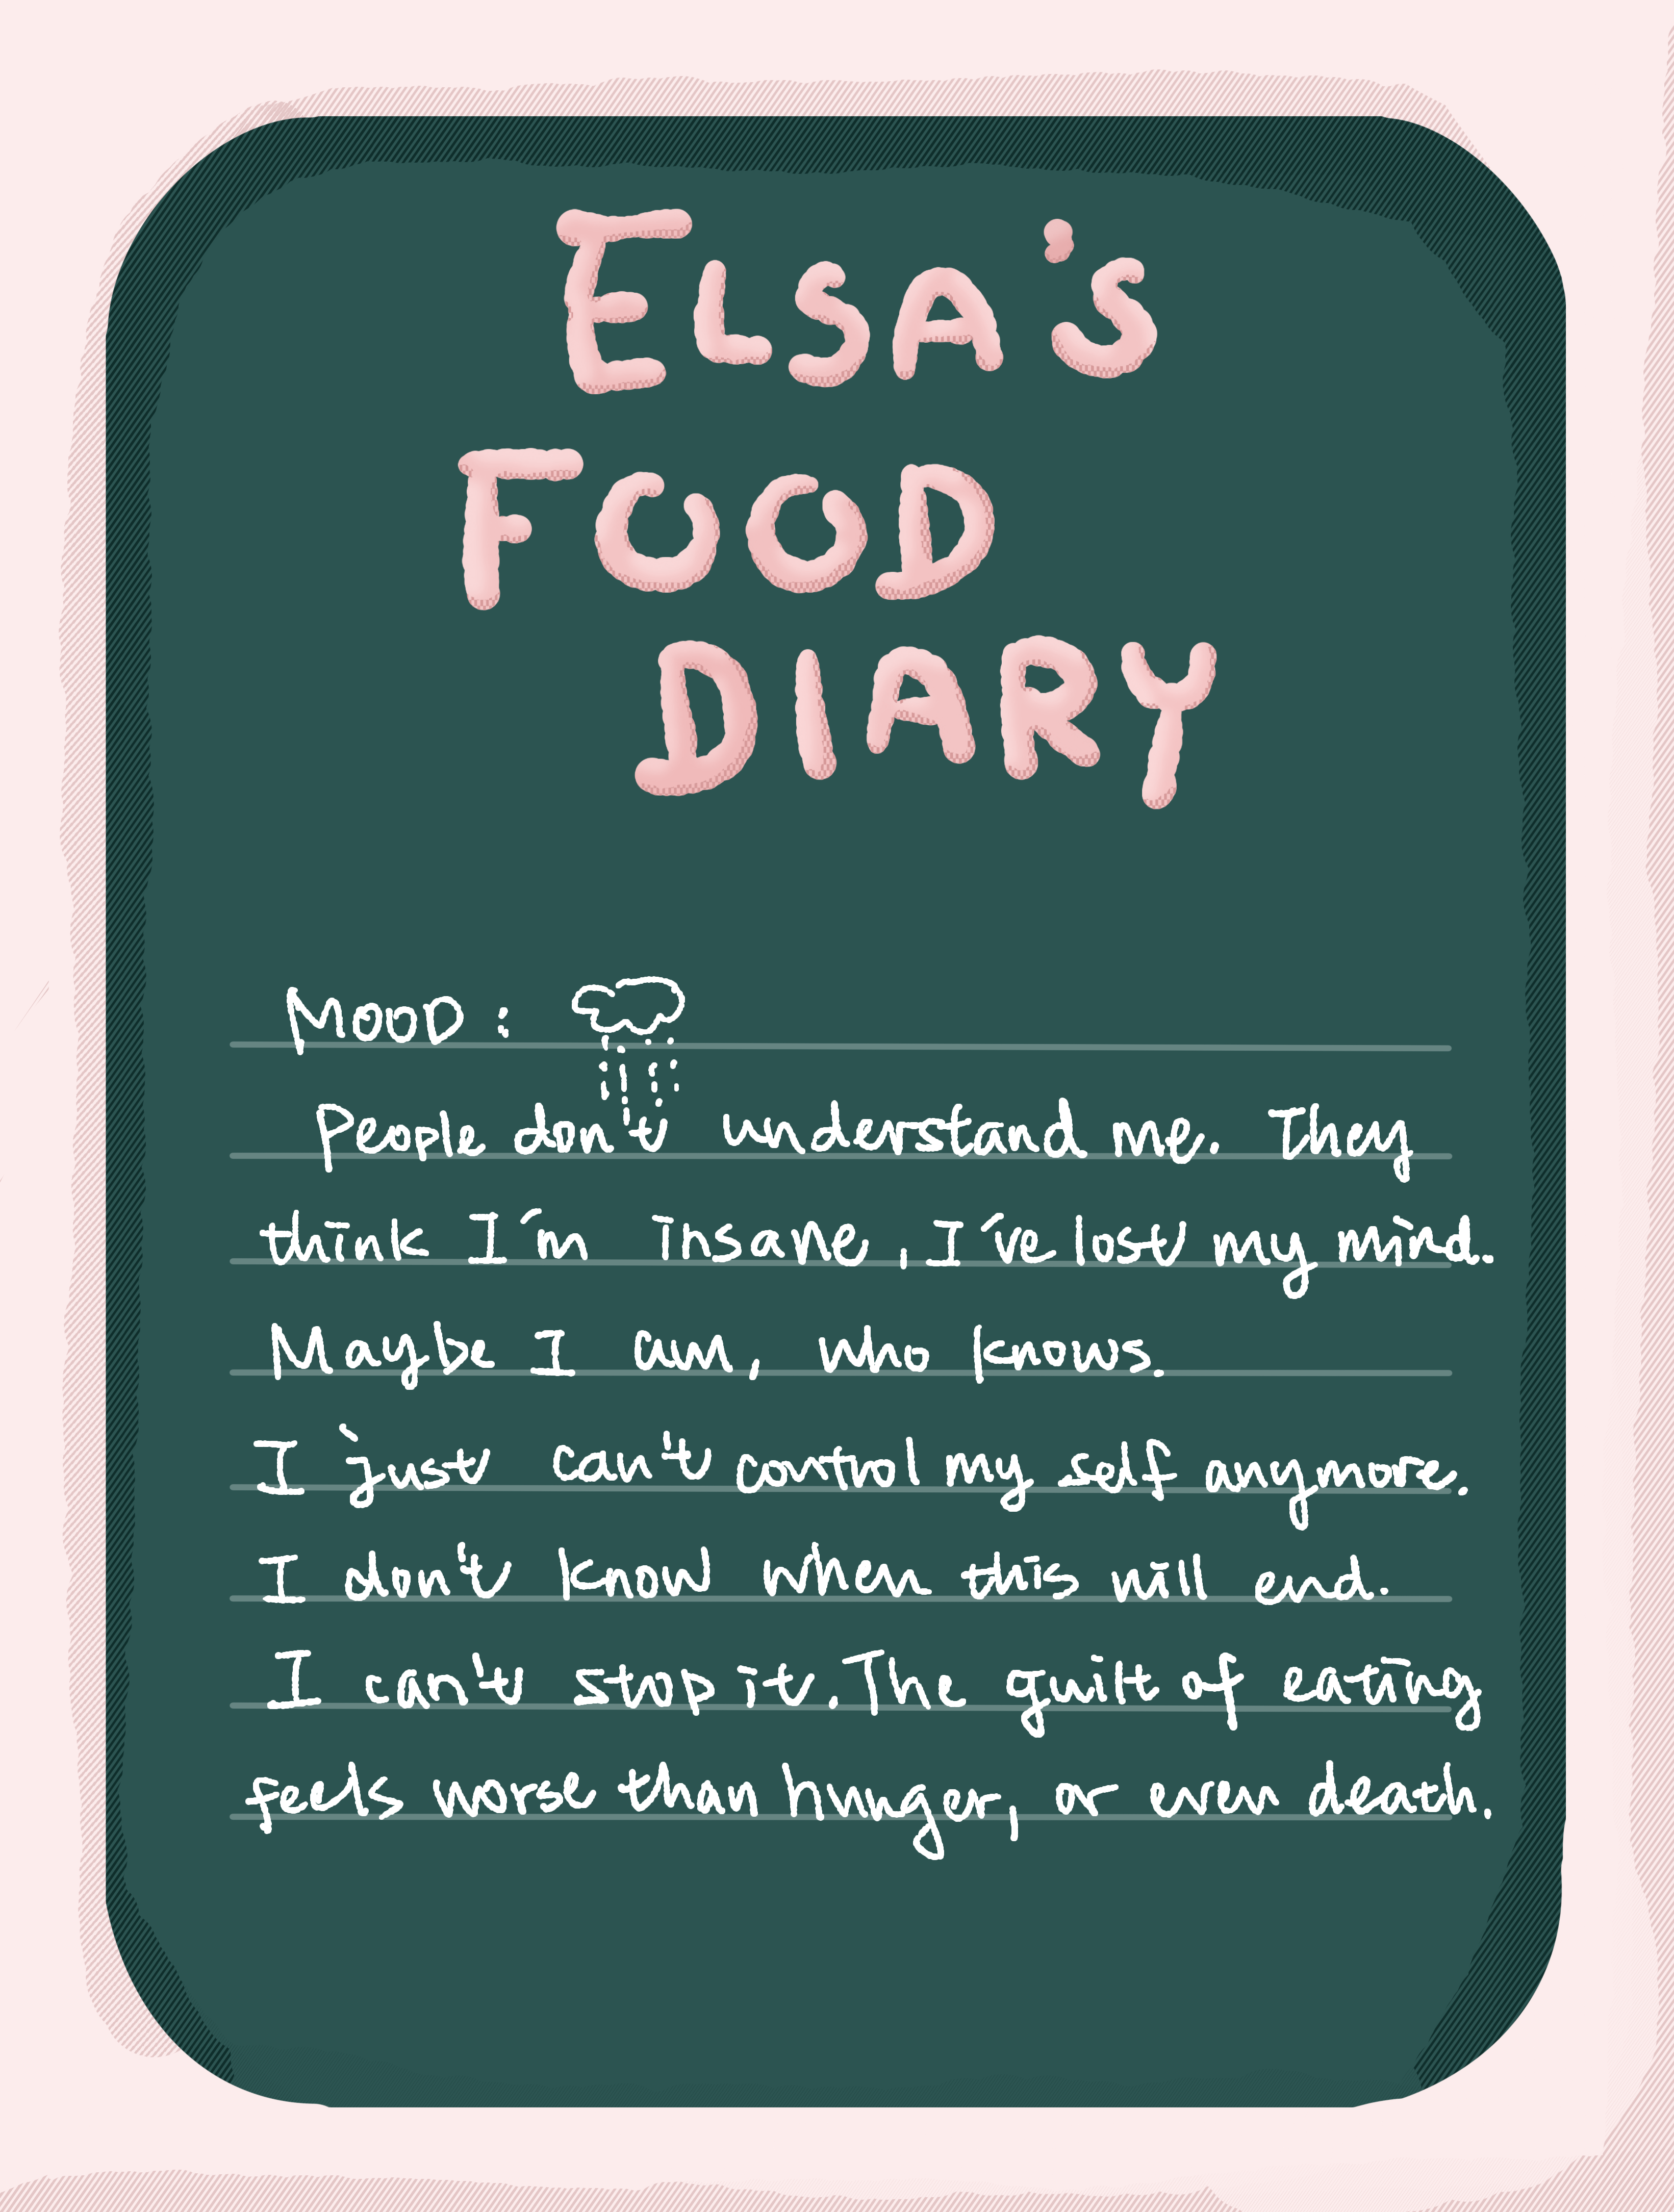 ELSA'S
FOOD
DIARY
MOOD:
People don't understand me. They
think I'm insane, I've lost my mind.
Maybe I am, who knows.
I just can't control my self anymore.
I don't know when this will end.
I can't stop it. The guilt of eating
feels worse than hunger, or even death.